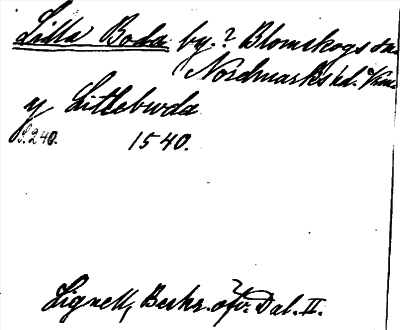 Lilla Boda by.? Blomskogs
Nordmarks hd.
y Litlebwda
S. 240. 1540.
Lignell, Beskr. öfv. Dal. II.